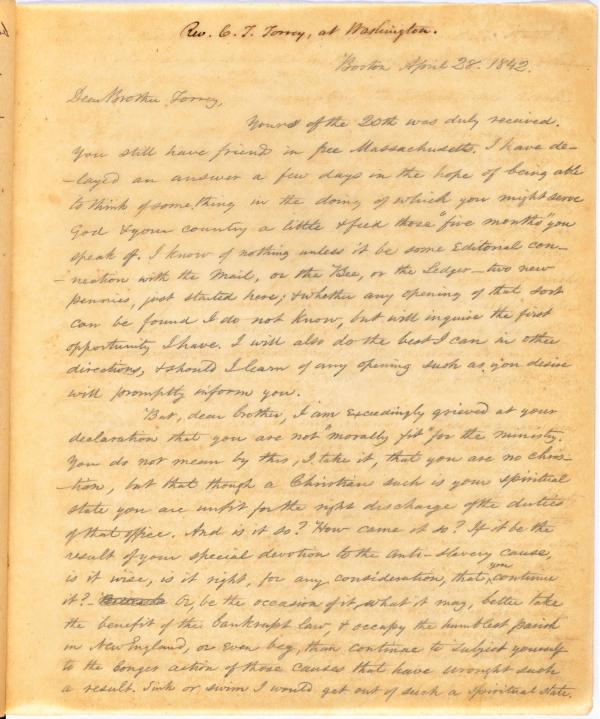 Rev. C. T. Torrey, at Washington.
Boston April 28. 1842.
Dear Brother Torrey,
Yours of the 20th was duly received.
You still have friends in free Massachusetts. I have de-
-layed an answer a few days in the hope of being able
to think of something in the doing of which you might serve
God & your country a little & feed those "five months" you
speak of. I know of nothing unless it be some Editorial con-
-nection with the Mail, or the Bee, or the Ledger - two new
pennies, just started here; & whether any opening of that sort
can be found I do not know, but will inquire the first
opportunity I have. I will also do the best I can in other
directions, & should I learn of any opening such as you desire
will promptly inform you.
But, dear brother, I am exceedingly grieved at your
declaration that you are not "morally fit" for the ministry.
You do not mean by this, I take it, that you are no chris-
-tian, but that though a Christian such is your spiritual
state you are unfit for the right discharge of the duties
of that office. And is it so? How came it so? If it be the
result of your special devotion to the anti-slavery cause,
is it wise, is it right, for any consideration, that you continue
it? - Or, be the occasion of it, what it may, better take
the benefit of the bankrupt law, & occupy the humblest parish
in New England, or even beg, than continue to subject yourself
to the longer action of those causes that have wrought such
a result. Sink or swim I would get out of such a spiritual state.